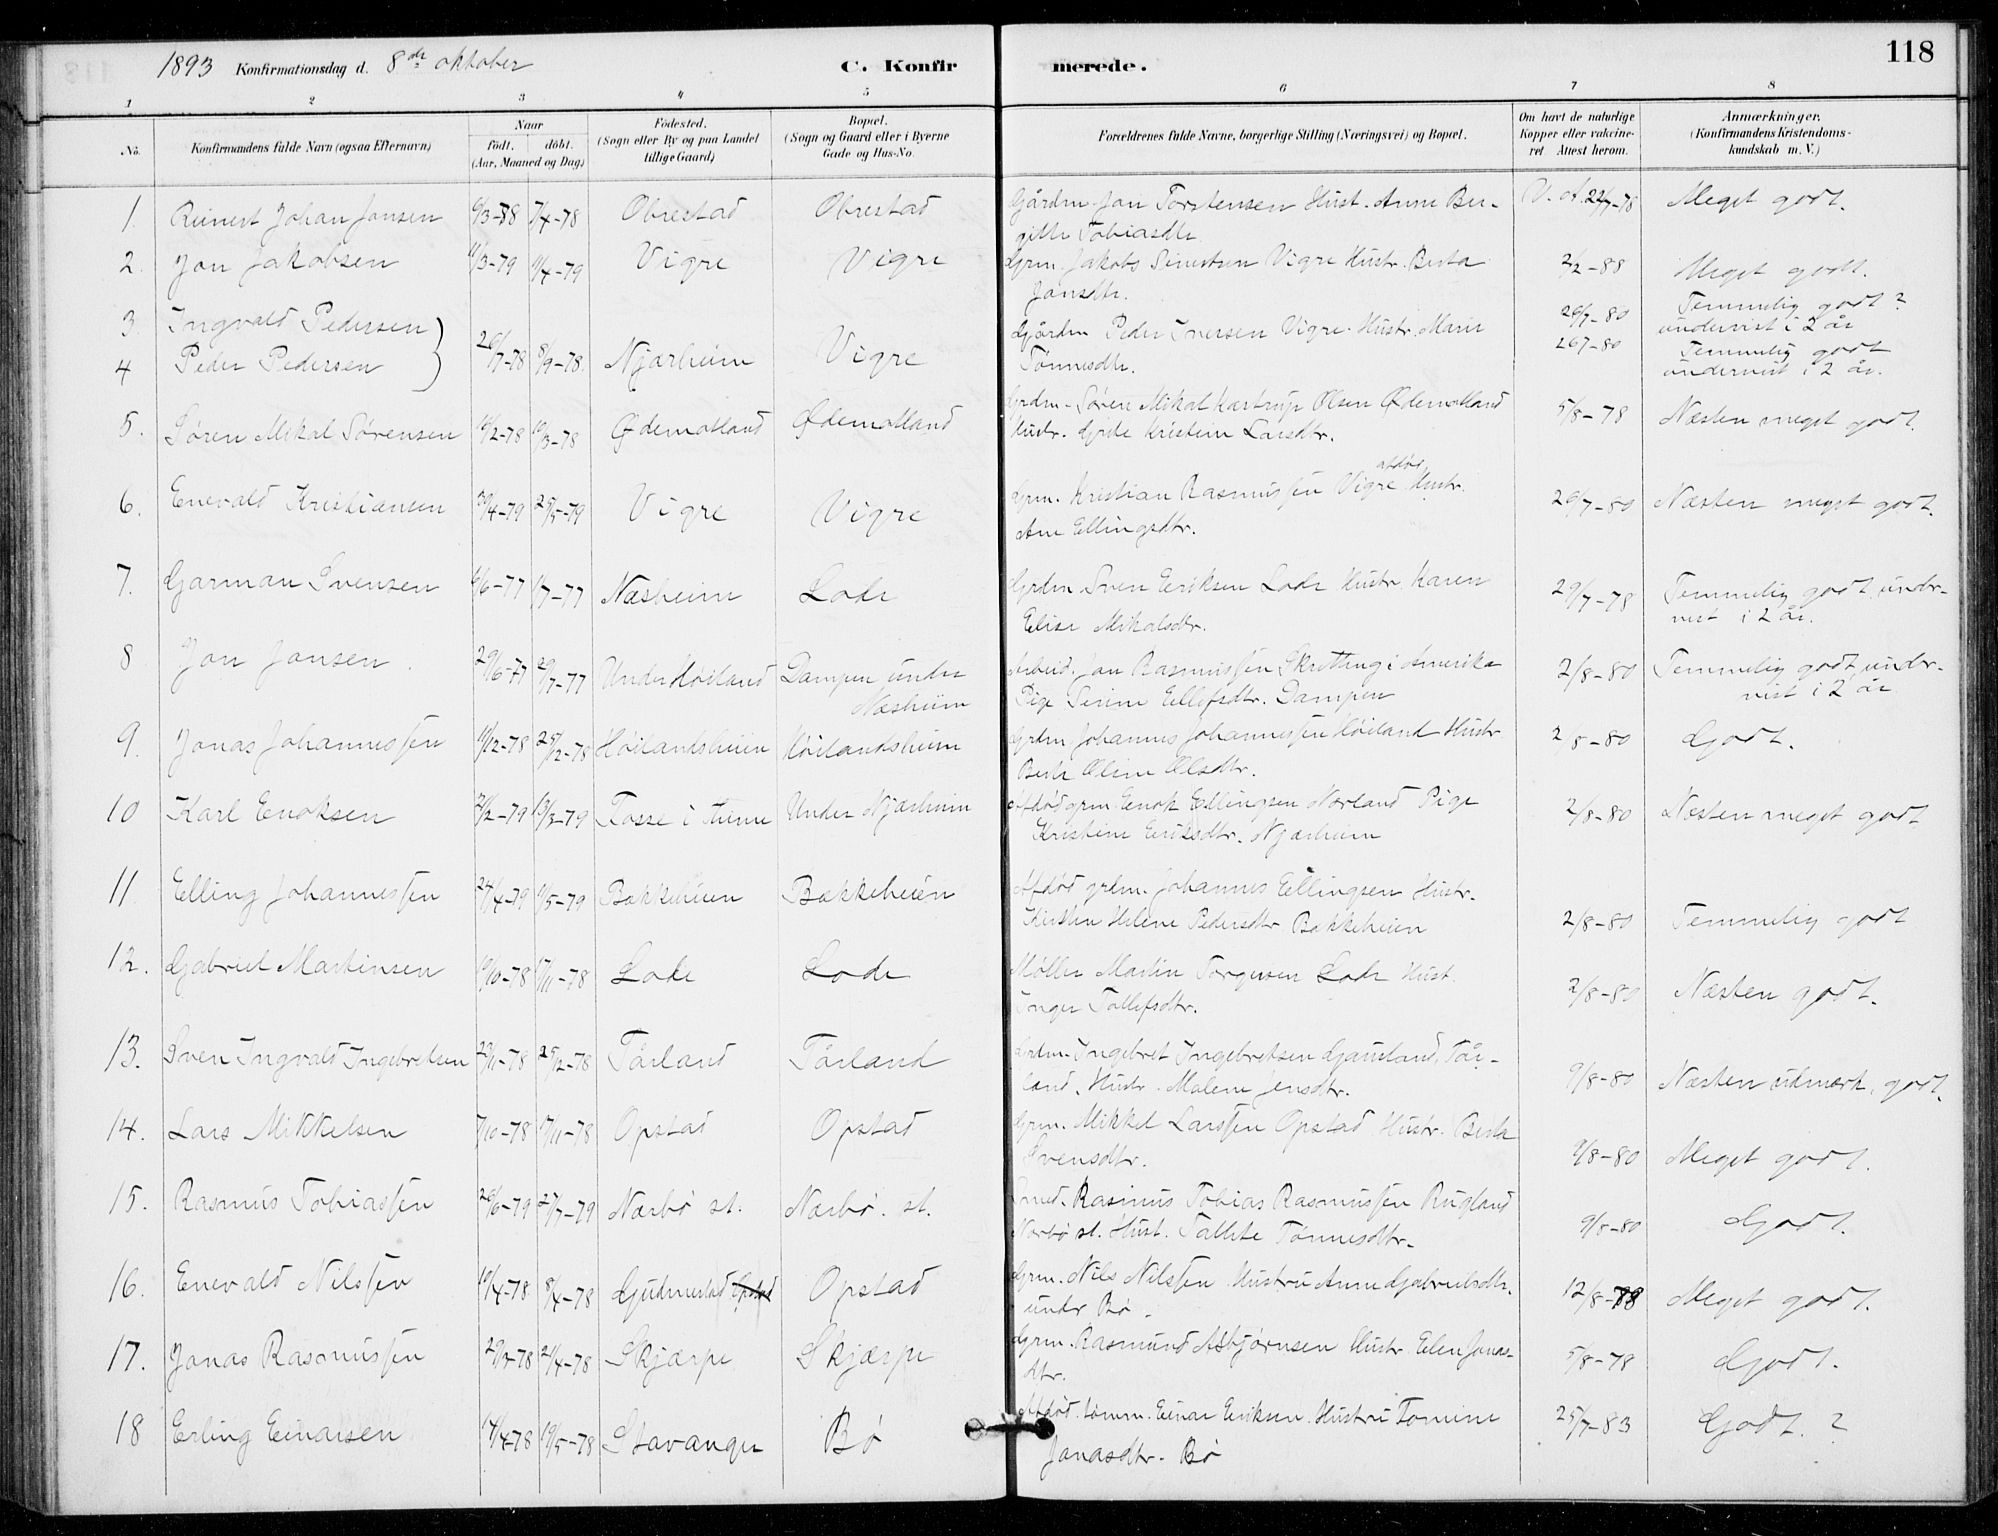 1893 Konfirmationsdag d. 8de oktober C. Konfirmerede. 118
1 2 3 4 5 6 7 8
No. Konfirmandens fulde Navn (ogsaa Efternavn) Naar født. døbt. (Aar, Maaned og Dag) Fødested. (Sogn eller By og paa Landet tillige Gaard) Bopæl. (Sogn og Gaard eller i Byerne Gade og Hus-No. Forældrenes fulde Navne, borgerlige Stilling (Næringsvei) og Bopæl. Om havt de naturlige Kopper eller vakcineret. Attest herom. Anmærkninger. (Konfirmandens Kristendomskundskab m. V.)
1. Reinert Johan Jansen 6/3-78 7/4-78 Obrestad Obrestad Gårdm. Jan Torstensen Hust. Anne Ber- V. at. 22/7-78 Meget godt.
githe Tobiasdtr.
2. Jon Jakobsen 11/3-79 11/4-79 Vigre Vigre Grm. Jakob Vigre Hustr. Berta 2/2-88 Meget godt.
Jansdtr.
3. Ingvald Pedersen } 26/7-78 8/9-78 Njærheim Vigre Gårdm Peder Iversen Vigre. Hustr. Marie 26/7-80 Temmelig godt? undervist i 2 år
4 Peder Pedersen Tønnesdtr. 267-80 Temmelig godt undervist i 2 år.
5. Søren Mikal Sørensen 16/2-78 10/3-78 Ødemotland Ødemotland Grdm. Søren Mikal Kastrup Olsen Ødemotland 5/8-78 Næsten meget godt.
Hustr. Grete Kristein Larsdtr.
6. Enevald Kristiansen 30/4-79 25/5-79 Vigre Vigre Grm. Kristian Rasmussen Vigre afdød, Hustr. 26/7-80 Næsten meget godt.
Ane Ellingsdtr.
7. Garman Svensen 6/6-77 1/7-77 Næsheim Lode Grdm. Sven Eriksen Lode Hustr. Karen 29/7-78 Temmelig godt, under-
Elise Mikalsdtr. vist i 2 år.
8 Jon Jansen. 29/6-77 29/7-77 Under Høiland Dampen under Arbeid. Jan Rasmussen Skretting i Amerika 2/8-80 Temmelig godt, under-
Næsheim Pige Serine Ellefsdtr. Dampen vist i 2 år
9. Jonas Johannessen 10/12-78 25/12-78 Høilandsheien Høilandsheim Grdm. Johannes Johannessen Høiland Hustr. 2/8-80 Godt.
Berte Oline Olsdtr.
10 Karl Enoksen 21/2-79 13/3-79 Fosse i Time Under Njærheim Afdød grm. Enok Ellingsen Nærland Pige 2/8-80 Næsten meget godt
Kristine Eriksdtr. Njærheim
11 Elling Johannessen 24/4-79 11/5-79 Bakkeheien Bakkeheien Afdød grdm. Johannes Ellingsen Hustr.
Kirsten Helene Pedersdtr Bakkeheien 2/8-80 Temmelig godt
12. Gabriel Martinsen 19/10-78 17/11-78 Lode Lode Møller Martin Torgersen Lode Hust.
Inger Tollefsdtr. 2/8-80 Næsten godt.
13. Sven Ingvald Ingebretsen 29/11-78 25/12-78 Tårland Tårland Grdm. Ingebret Ingebretsen Gausland, Tår-
land. Hustr. Malene Jensdtr. 9/8-80 Næsten udmærk. godt.
14. Lars Mikkelsen 7/10-78 17/11-78 Opstad Opstad Grm. Mikkel Larssen Opstad Hustr. Berta
Svensdtr. 9/8-80 Meget godt.
15. Rasmus Tobiassen 26/6-79 27/7-79 Nærbø st. Nærbø. st. Smed. Rasmus Tobias Rasmussen Rugland
Nærbø st. Hust. Tallete Tønnesdtr. 9/8-80 Godt.
16. Enevald Nilssen 19/4-78 8/4-78 Gudmestad Opstad Opstad Grm. Nils Nilssen Hustru Anne Gabrielsdtr. 12/8-78 Meget godt.
under Bø.
17. Jonas Rasmussen 29/3-78 21/4-78 Skjærpe Skjærpe Grm. Rasmund Asbjørnsen Hustr Elen Jonas- 5/8-78 Godt.
dtr.
18 Erling Einarsen 14/4-78 19/5-78 Stavanger Bø Afdød. tømm. Einar Eriksen. Hustru Tomine 25/7-83 Godt.?
Jonasdtr. Bø